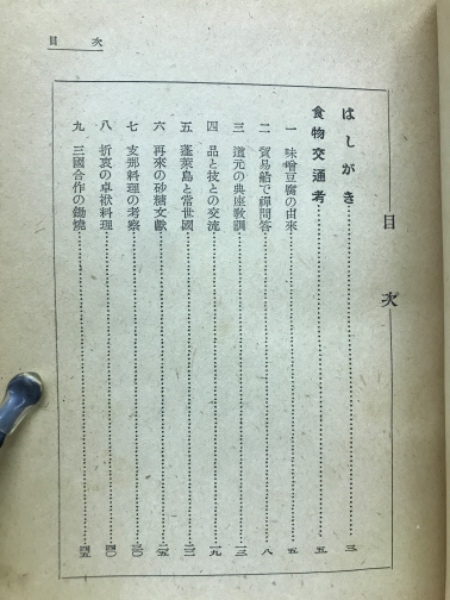 目次
目次
はしがき……三
食物交通考……五
一 味噌豆腐の由来……五
二 貿易船で禪問答……八
三 道元の典座教訓……一三
四 品と技との交流……一九
五 蓬萊島と常世國……二二
六 再來の砂糖文獻……二五
七 支那料理の考察……三〇
八 折衷の卓袱料理……四〇
九 三國合作の鋤燒……四五